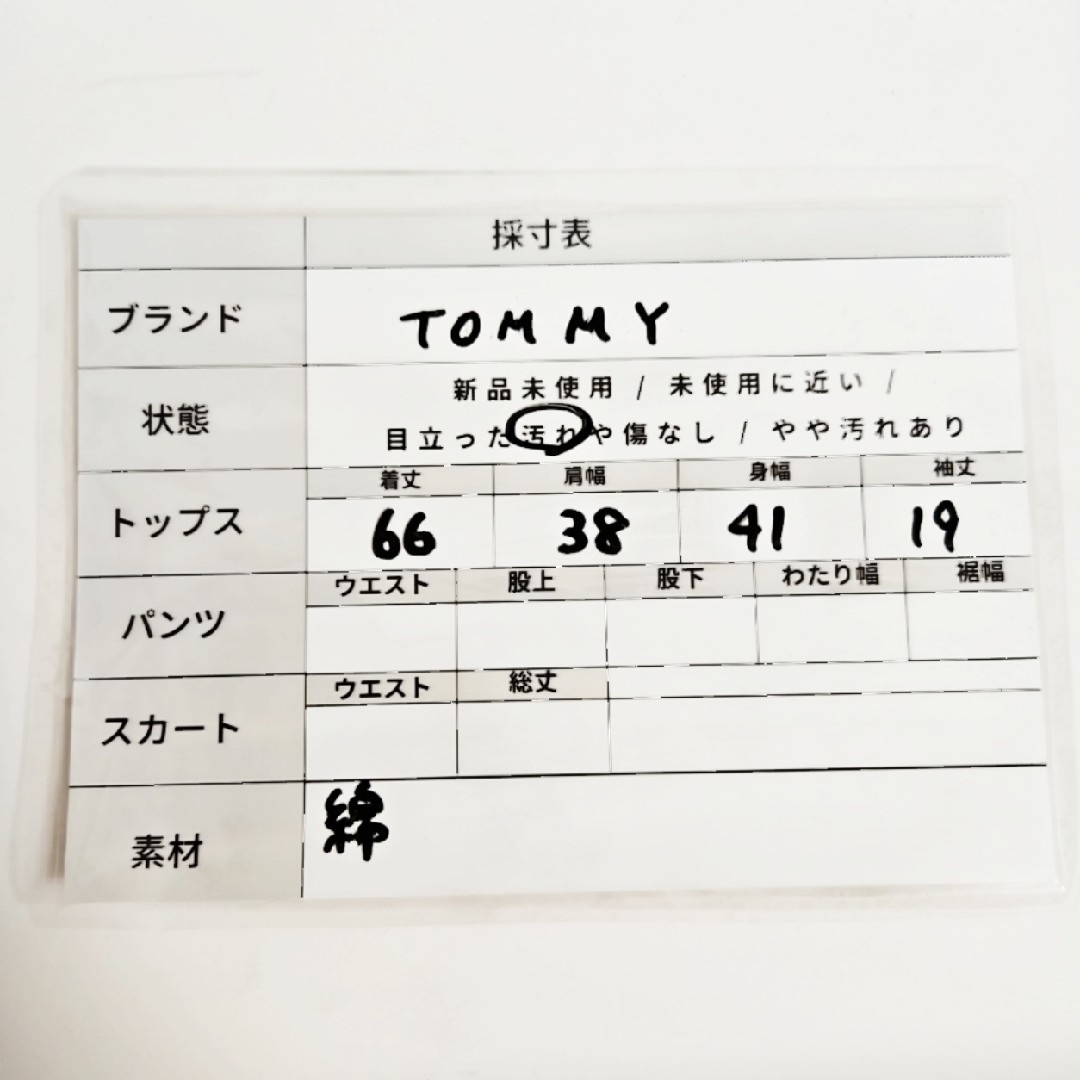 採寸表
ブランド TOMMY
状態 新品未使用 / 未使用に近い /
目立った汚れや傷なし / やや汚れあり
着丈 肩幅 身幅 袖丈
トップス 66 38 41 19
ウエスト 股上 股下 わたり幅 裾幅
パンツ
ウエスト 総丈
スカート
素材 綿